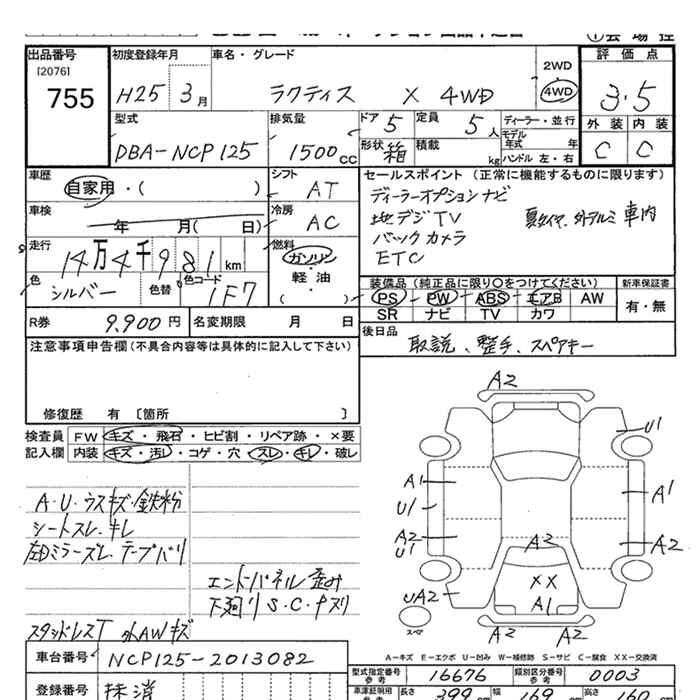 出品番号
[2076]
755
初度登録年月
H25 3月
車名・グレード
ラクティス X 4WD
2WD
4WD
評価点
3.5
型式
DBA-NCP125
排気量
1500cc
ドア 5
定員 5人
ディーラー・並行
モデル年式 年
形状 箱
積載 kg
ハンドル 左・右
外装 内装
C C
車歴
自家用・( )
シフト
AT
車検
年 月( 日)
冷房
AC
走行
14万4千981km
燃料
ガソリン
・
軽油
( )
色
シルバー
色替
色コード
1F7
セールスポイント(正常に機能するものに限ります)
ディーラーオプションナビ
地デジTV
夏タイヤ、外アルミ車内
バックカメラ
ETC
装備品(純正品に限り○をつけてください)
新車保証書
PS PW ABS エアB AW
SR ナビ TV カワ
有・無
R券
9.900円
名変期限 月 日
後日品
取説、整手、スペアキー
注意事項申告欄(不具合内容等は具体的に記入して下さい)
修復歴 有 [箇所 ]
検査員
記入欄
FW キズ・飛石・ヒビ割・リペア跡・×要
内装 キズ・汚レ・コゲ・穴・スレ・キレ・破レ
A・U・ウスキズ・鉄粉
シートスレ、キレ
左Dミラーズレ、テープバリ
エンドパネル歪み
下廻りS.C.キズリ
スタッドレスT 外AWキズ
A2
U1
A1
U1
A1
A2
U1
A2
A2
UA2
XX
A1
スペア
A2
A2
A-キズ E-エクボ U-凹み W-補修跡 S-サビ C-腐食 XX-交換済
車台番号
NCP125-2013082
型式指定番号
参考
16676
類別区分番号
参考
0003
登録番号
抹消
車庫証明用
長さ 399cm
幅 169cm
高さ 160cm